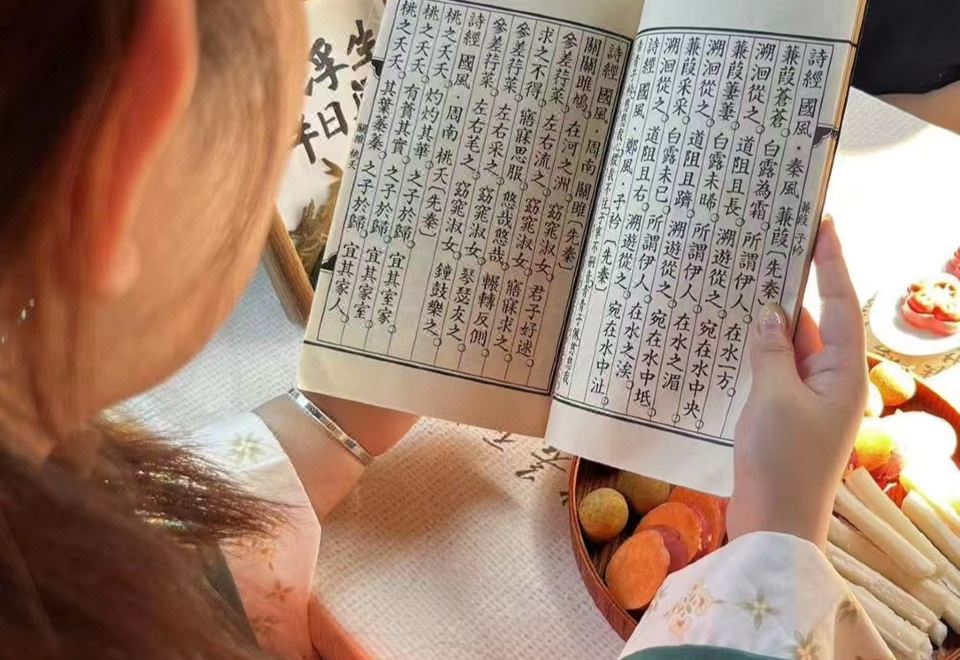 蒹葭 子衿
詩經 國風·秦風 蒹葭〔先秦〕
蒹葭蒼蒼。白露為霜。所謂伊人。在水一方。
溯洄從之。道阻且長。溯遊從之。宛在水中央。
蒹葭萋萋。白露未晞。所謂伊人。在水之湄。
溯洄從之。道阻且躋。溯遊從之。宛在水中坻。
蒹葭采采。白露未已。所謂伊人。在水之涘。
溯洄從之。道阻且右。溯遊從之。宛在水中沚。
詩經 國風·鄭風·子衿〔先秦〕
詩經 國風·周南 關雎〔先秦〕
關關雎鳩。在河之洲。窈窕淑女。君子好逑。
參差荇菜。左右流之。窈窕淑女。寤寐求之。
求之不得。寤寐思服。悠哉悠哉。輾轉反側。
參差荇菜。左右采之。窈窕淑女。琴瑟友之。
參差荇菜。左右芼之。窈窕淑女。鐘鼓樂之。
詩經 國風·周南 桃夭〔先秦〕
桃之夭夭。灼灼其華。之子於歸。宜其室家。
桃之夭夭。有蕡其實。之子於歸。宜其家室。
桃之夭夭。其葉蓁蓁。之子於歸。宜其家人。
關雎 桃夭
浮
日